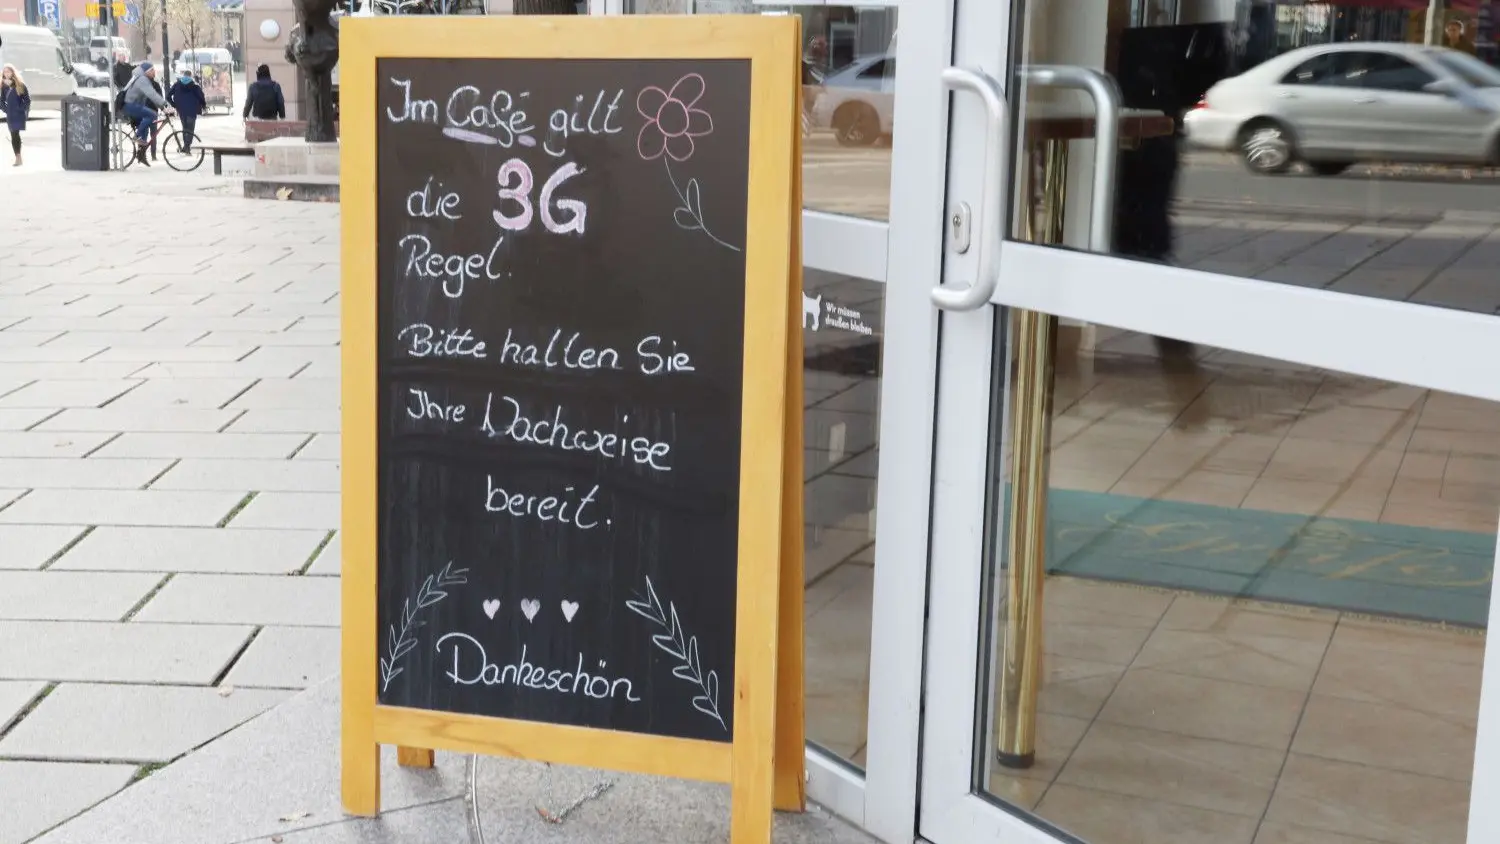 Im Café gilt
die 3G
Regel.
Bitte halten Sie
Ihre Nachweise
bereit.
Dankeschön
Wir müssen
draußen bleiben